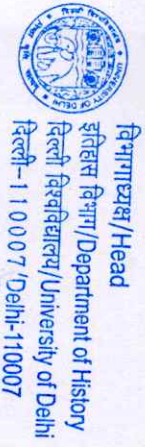 विभागाध्यक्ष/Head
इतिहास विभाग/Department of History
दिल्ली विश्वविद्यालय/University of Delhi
दिल्ली-110007/Delhi-110007
UNIVERSITY OF DELHI